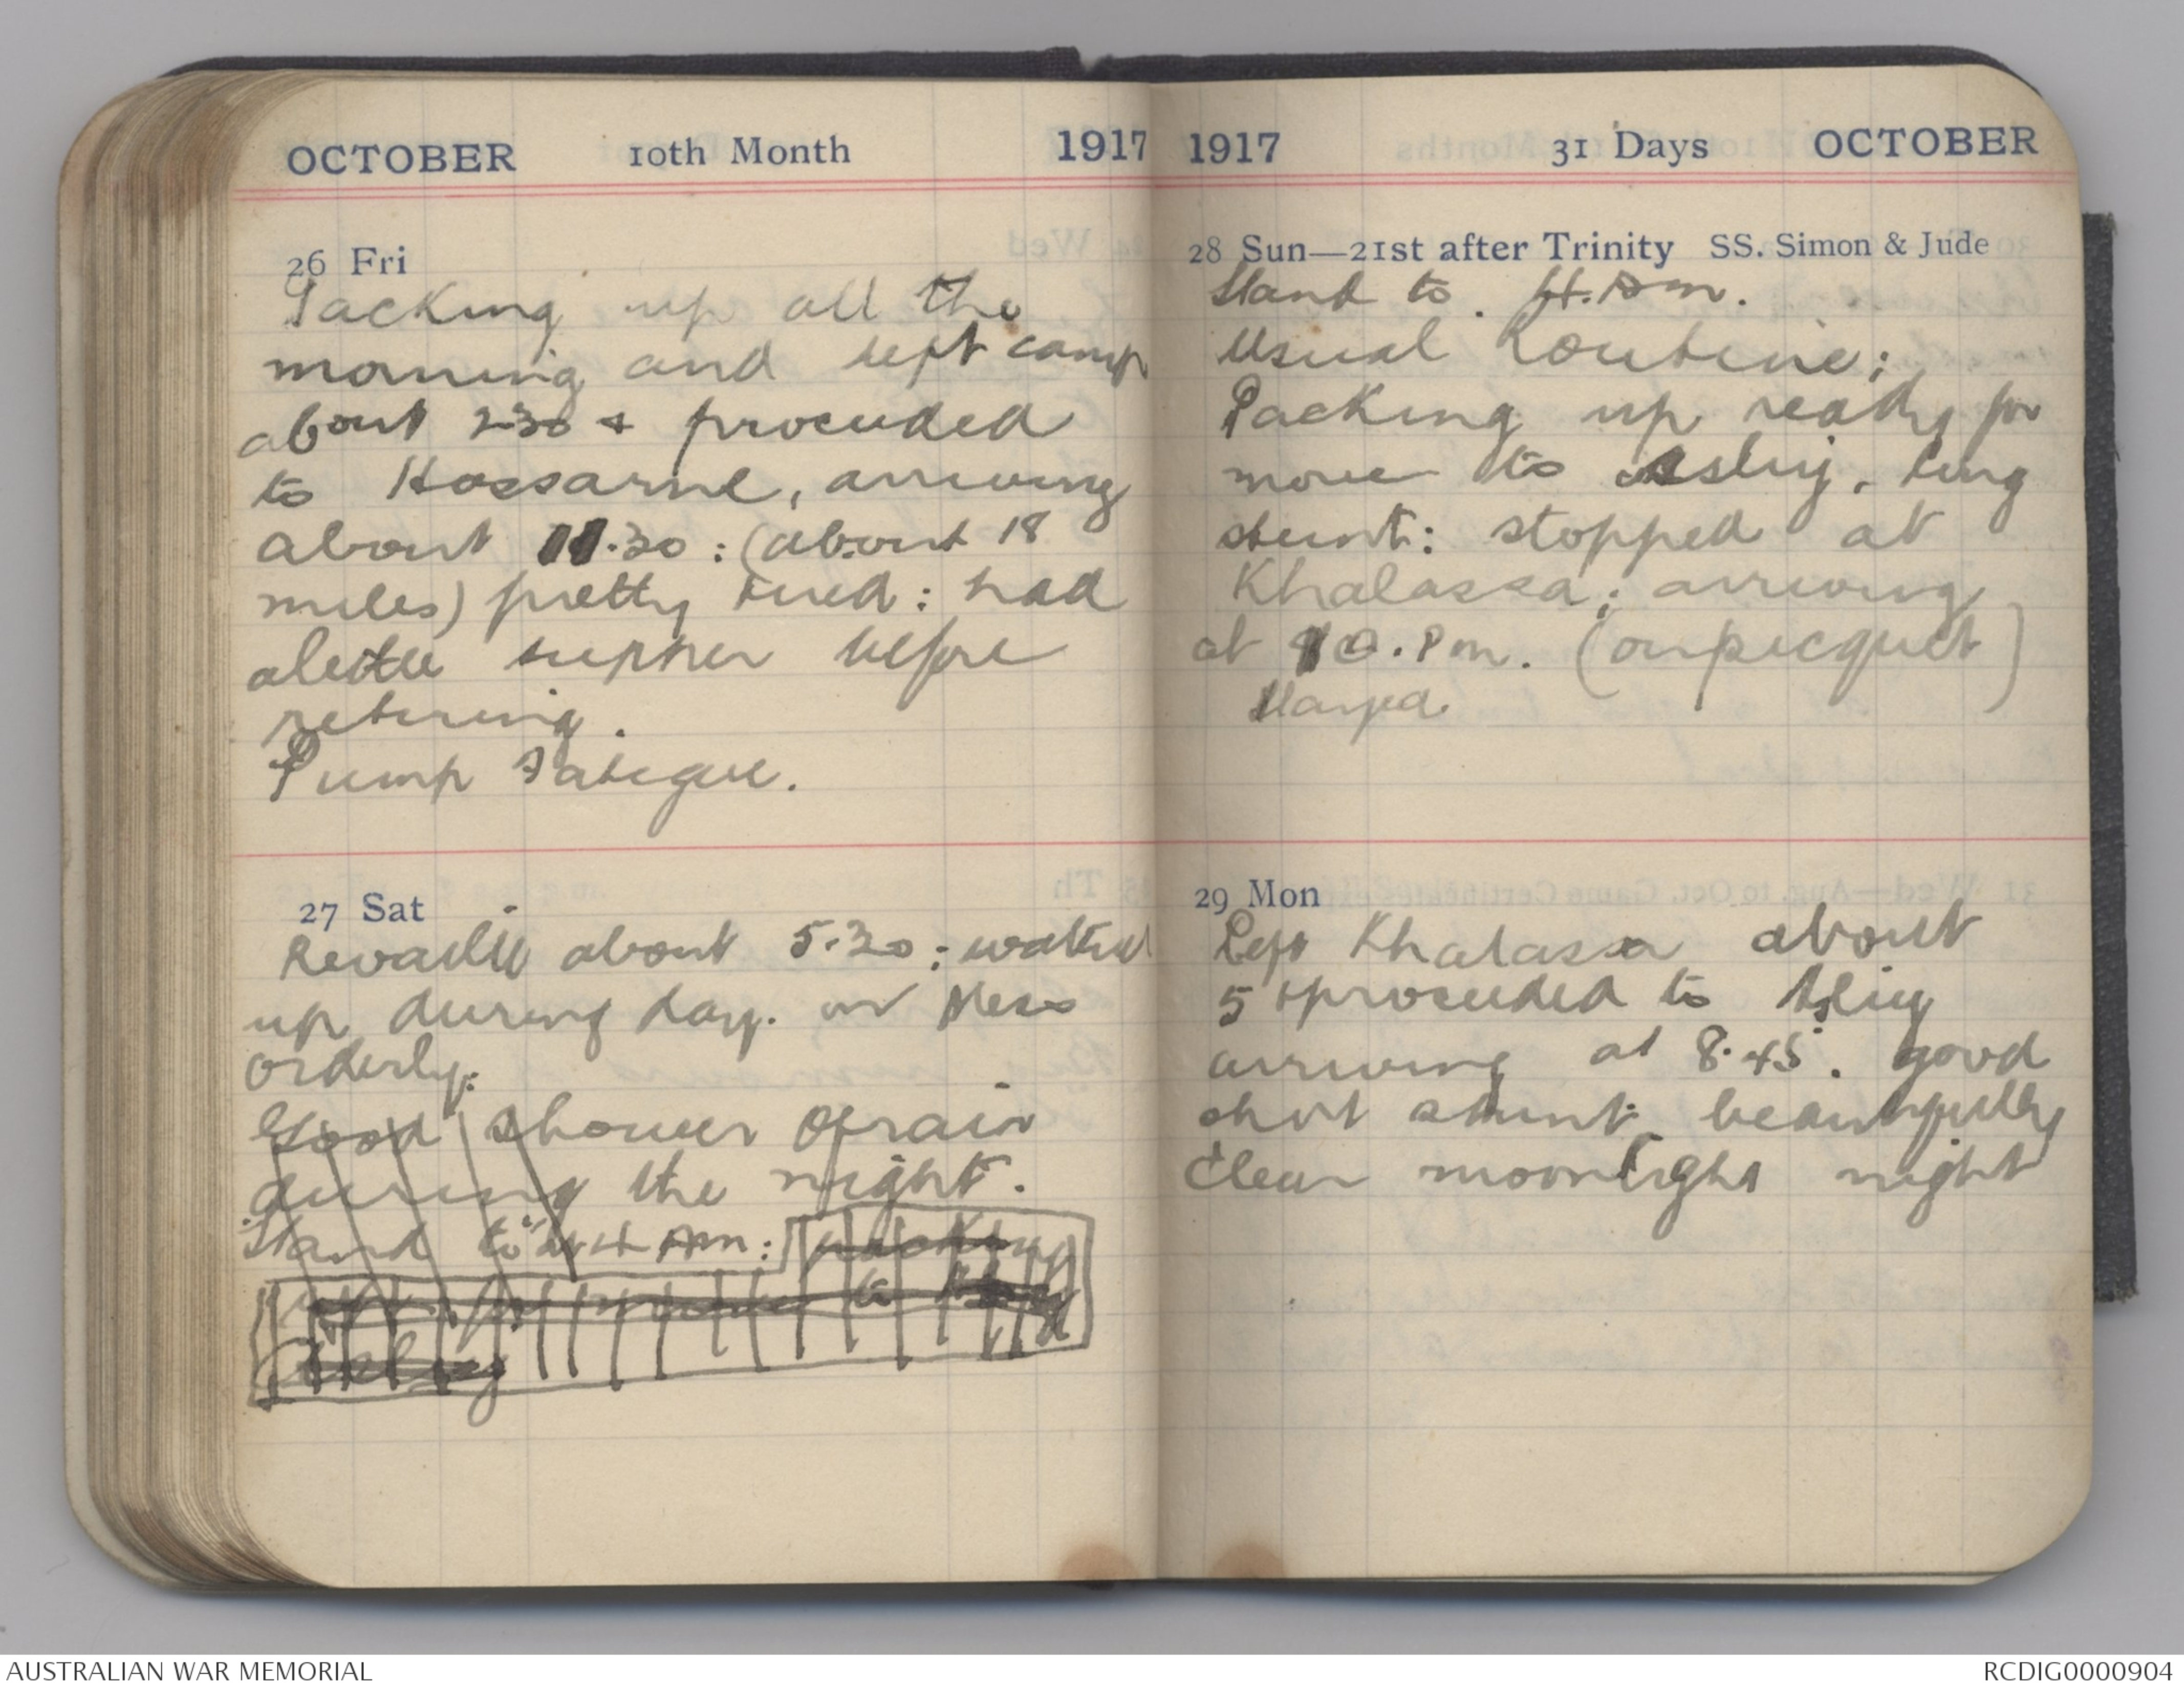 OCTOBER 10th Month 1917
26 Fri
Packing up all the
morning and left camp
about 2.30 & proceeded
to Hossarne, arriving
about 11.30 : (about 18
miles) pretty tired : had
alittle supper before
retiring.
Pump Fatigue.
27 Sat
Revaille about 5.30 ; watered
up during day. on Mess
orderly.
Good shower of rain
during the night.
Stand to at 4 Am : packing
up for move to
Asluj
1917 31 Days OCTOBER
28 Sun—21st after Trinity SS. Simon & Jude
Stand to. 4. Am.
Usual Routine;
Packing up ready for
move to Asluj. Long
stunt : stopped at
Khalassa ; arriving
at 10. Pm. (on picquet)
Stayed
29 Mon
Left Khalassa about
5 & proceeded to Asluj
arriving at 8.45. good
short stunt. beautifully
clear moonlight night
AUSTRALIAN WAR MEMORIAL
RCDIG0000904